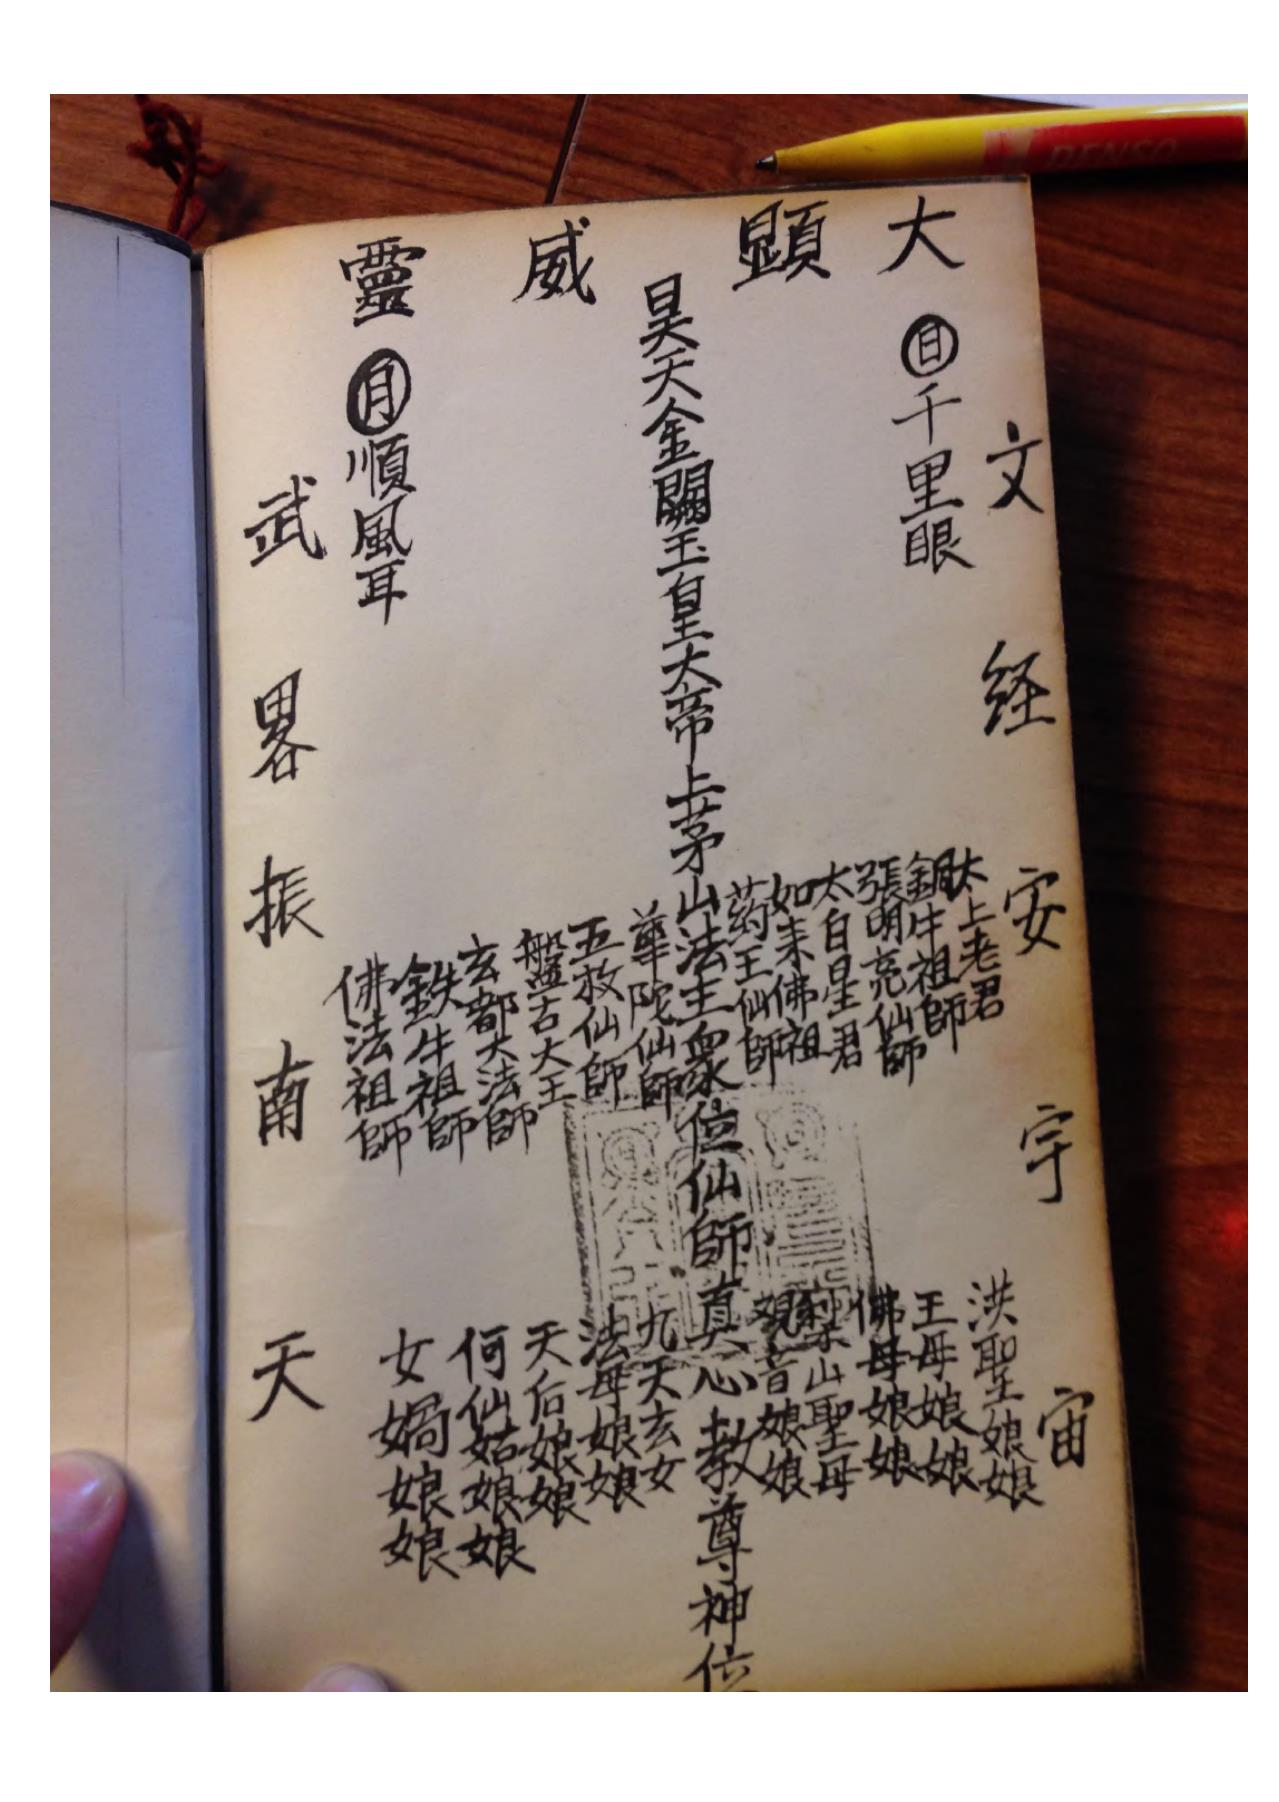 大顕威靈
文经安宇宙
㊐千里眼
太上老君
銅牛祖師
張明亮仙師
太白星君
如来佛祖
药王仙師
昊天金闕玉皇大帝上茅山法主衆位仙師真心教尊神位
華陀仙師
五救仙師
盤古大王
玄都大法師
鉄牛祖師
佛法祖師
洪聖娘娘
王母娘娘
佛母娘娘
梨山聖母
观音娘娘
九天玄女
法母娘娘
天后娘娘
何仙姑娘娘
女媧娘娘
㊊順風耳
武畧振南天
DENSO